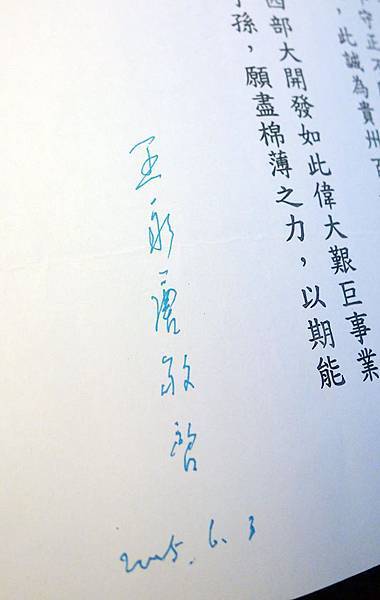 守正不
，此誠為貴州百
西部大開發如此偉大艱巨事業
子孫，願盡棉薄之力，以期能
王永慶敬啓
2005. 6. 3